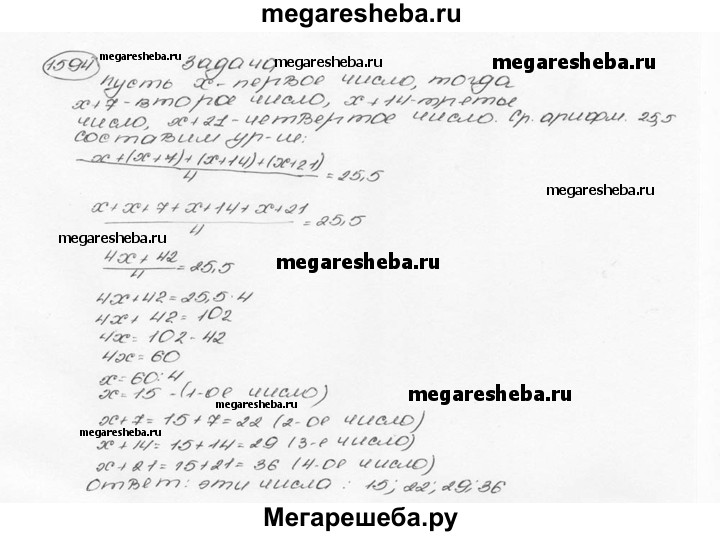 megaresheba.ru
1594 megaresheba.ru задача megaresheba.ru megaresheba.ru
пусть x-первое число, тогда
x+7-второе число, x+14-третье
число, x+21-четвертое число. Ср. арифм. 25,5
составим ур-ие:
x+(x+7)+(x+14)+(x+21)
4 = 25,5
megaresheba.ru
x+x+7+x+14+x+21
4 = 25,5
megaresheba.ru
4x+42
4 = 25,5
megaresheba.ru
4x+42=25,5·4
4x+42=102
4x=102-42
4x=60
x=60:4
x=15 -(1-ое число)
megaresheba.ru
megaresheba.ru
x+7=15+7=22 (2-ое число)
megaresheba.ru
x+14=15+14=29 (3-е число)
x+21=15+21=36 (4-ое число)
Ответ: эти числа: 15; 22; 29; 36
Мегарешеба.ру